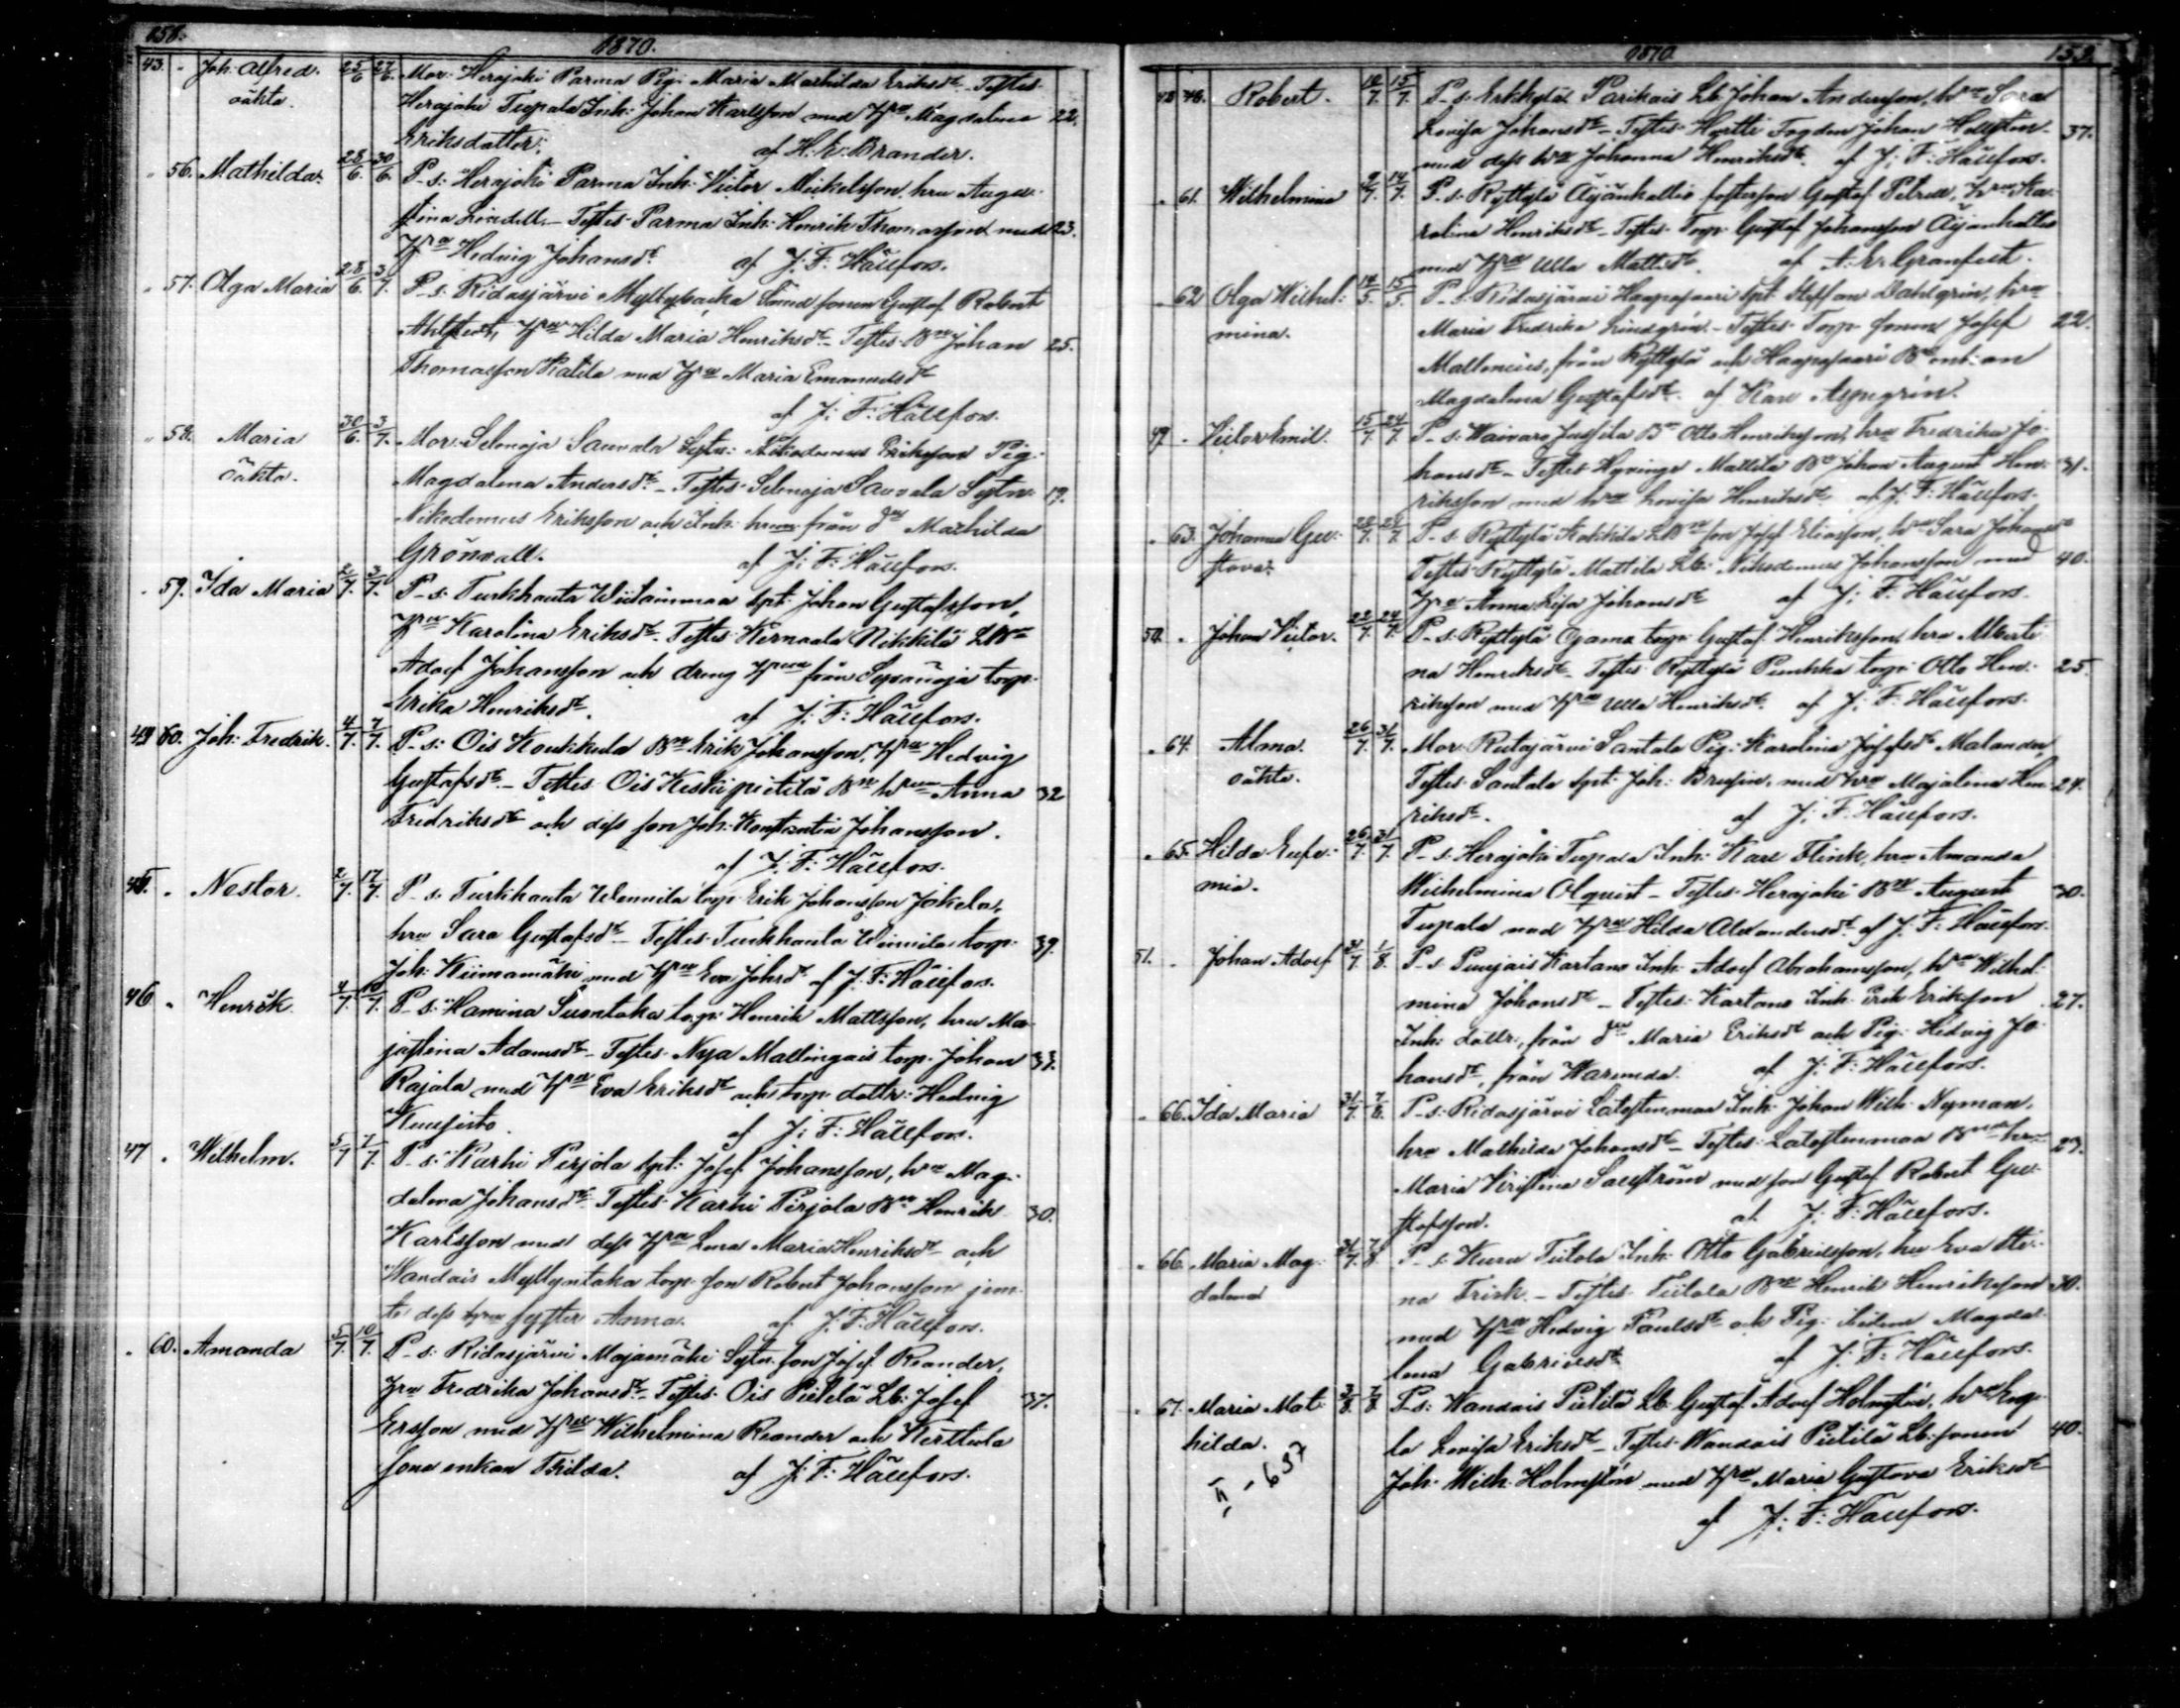 158.
1870.
43. - Joh: Alfred. 25/6 27/6. Mor: Herajoki Parma Pig: Maria Mathilda Eriksdt. Testes
oäkta. Herajoki Tupala Inh: Johan Karlsson med hru Magdalena 22.
Eriksdotter. af H. E. Brander.
" 56. Mathilda. 28/6. 30/6. P-s: Herajoki Parma Inh: Victor Mickelsson, hru Augu-
stina Lindell. - Testes Parma Inh: Henrik Thomasson med 23.
hru Hedvig Johansdt. af J: F: Hällfors.
" 57. Olga Maria 28/6. 3/7. P-s: Ridasjärvi Myllybacka Smed sonen Gustaf Robert
Ahlstedt, hru Hilda Maria Henriksdt. Testes Bn Johan 25.
Thomasson Katila med hru Maria Emanuelsdt
af J: F: Hällfors.
" 58. Maria 30/6. 3/7. Mor: Selenoja Sauvala Sytn: Nikodemus Eriksson Pig:
oäkta. Magdalena Andersdt. - Testes Selenoja Sauvala Sytn: 19.
Nikodemus Eriksson och Inh: hrun från do Mathilda
Grönvall. af J: F: Hällfors.
" 59. Ida Maria 2/7. 3/7. P-s: Turkhauta Wiidainmaa Spt: Johan Gustafsson,
hru Karolina Eriksdt. Testes Kernaala Nikkilä
Adolf Johansson och dreng hrun från Sepänoja torp
Erika Henriksdt. af J: F: Hällfors.
44 60. Joh: Fredrik. 4/7. 7/7. P-s: Ois Koukkula Bn Erik Johansson, hru Hedvig
Gustafsdt. - Testes Ois Keskipietilä Bn hrun Anna 32
Fredriksdt och dess son Joh: Konstantin Johansson.
af J: F: Hällfors.
45. " Nestor. 2/7. 17/7. P-s: Turkhauta torp: Erik Johansson Jokela,
hru Sara Gustafsdt - Testes Turkhauta torp: 39.
Joh: Kiimamäki med hru Eva Johsdt af J: F: Hällfors.
46. " Henrik 4/7. 10/7. P-s: Hamina Suontaka torp: Henrik Mattsson, hru Ma-
jastina Adamsdt - Testes Nya Mallingais torp: Johan 33.
Rajala med hru Eva Eriksdt och torp: dottr: Hedvig
Kuusisto. af J: F: Hällfors.
47 " Wilhelm. 5/7 7/7. P-s: Karhi Pirjola Spt: Josef Johansson, hru Mag-
dalena Johansdt. Testes Karhi Pirjola Bn Henrik 30.
Karlsson med dess hru Lena Maria Henriksdt och
Wandais Myllyntaka torp: son Robert Johansson jem-
te dess syster Anna. af J. F: Hällfors.
" 60. Amanda 5/7. 10/7. P-s: Ridasjärvi Majamäki Sytn: son Josef Reander,
hru Fredrika Johansdt. - Testes Ois Pietilä Lb: Josef 37.
Ersson med hru Wilhelmina Reander och Kerttula
Sone enkan Thilda. af J: F: Hällfors.
1870
159.
48 Robert. 10/7. 15/7. P-s: Erkkylä Parikais Lb: Johan Andersson, hru Sara
Lovisa Johansdt - Testes Hyetti Fogden Johan Hellstén 37.
med dess hru Johanna Henriksdt. af J: F: Hällfors.
" 61. Wilhelmina 9/7. 14/7. P-s: Ryttylä Äijänkallio fosterson Gustaf Petrell, hru Ka-
rolina Henriksdt - Testes Torp: Gustaf Johansson Äijänkallio
med hru Ulla Mattsdt. af A. E. Granfelt.
" 62 Olga Wilhel: 14/5. 15/5. P-s: Ridasjärvi Haapasaari Spt: Steffan Dahlgrén, hru
mina. Maria Fredrika Lindgrén - Testes Torp: sonen Josef 22.
Mallenius, från Ryttylä och Haapasaari
Magdalena Gustafsdt. af Karl Aspegrén.
49 - Victor Emil. 15/7. 24/7. P-s: Waivaro Jussila Bn Otto Henriksson, hru Fredrika Jo-
hansdt - Testes Hyvinge Mattila Bn Johan August Hen- 31.
riksson med hru Lovisa Henriksdt af J: F: Hällfors.
" 63. Johanna Gu- P-s: Ryttylä Kokkila son Josef Eliasson, hru Sara Johansdt
stava. Testes Ryttylä Mattila Lb: Nikodemus Johansson med 40.
hru Anna Lisa Johansdt af J: F: Hällfors.
50. " Johan Victor. 22/7. 24/7. P-s: Ryttylä Ojama torp: Gustaf Henriksson, hru Alberti-
na Henriksdt - Testes Ryttylä Punkka torp: Otto Hen- 25.
riksson med hru Ulla Henriksdt. af J: F: Hällfors.
" 64. Alma. 26/7. 31/7. Mor: Rutajärvi Santala Pig: Karolina Josefsdt Malander,
oäkta. Testes Santala Spt: Joh: Brusin, med hru Majalena Hen- 24.
riksdt. af J: F: Hällfors.
" 65. Hilda Eufe- 26/7. 31/7. P-s: Herajoki Tupala Inh: Karl Flink, hru Amanda
mia. Wilhelmina Olquist - Testes Herajoki Bn August 30.
Tupala med hru Hilda Alexandersdt. af J: F: Hällfors.
51. - Johan Adolf 31/7 1/8. P-s: Punjais Kartano Inh: Adolf Abrahamsson, hru Wilhel-
mina Johansdt - Testes: Kartano Inh: Erik Eriksson 27.
Inh: dottr:, från do Maria Eriksdt och Pig: Hedvig Jo-
hansdt, från Warunda. af J: F: Hällfors.
" 66. Ida Maria 31/7. 7/8. P-s: Ridasjärvi Latostenmaa Inh: Johan Wilh: Nyman,
hru Mathilda Johansdt - Testes: Latostenmaa hru 29.
Maria Kristina Sallström med son Gustaf Robert Gu-
stafsson. af J: F: Hällfors.
" 66. Maria Mag- 31/7. 7/8 P-s: Kuru Tiitola Inh: Otto Gabrielsson, hru Eva Sti-
dalena na Frisk. - Testes Tiitola Bn Henrik Henriksson 30.
med hru Hedvig Paulsdt och Pig: Helena Magda-
lena Gabrielsdt af J: F: Hällfors.
" 67. Maria Mat- 3/8. 7/8. P-s: Wandais Pietilä Lb: Gustaf Adolf Holmstén, hru Eng-
hilda. la Lovisa Eriksdt - Testes Wandais Pietilä Lb: sonen 40.
II - 637 Joh: Wilh: Holmstén med hru Maria Gustava Eriksdt
af J: F: Hällfors.